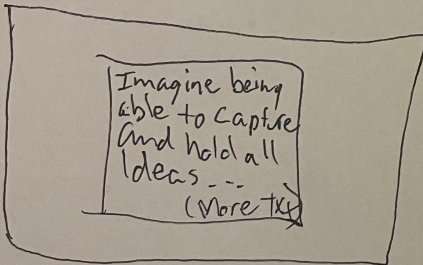 Imagine being
able to capture
and hold all
Ideas ---
(More txt)